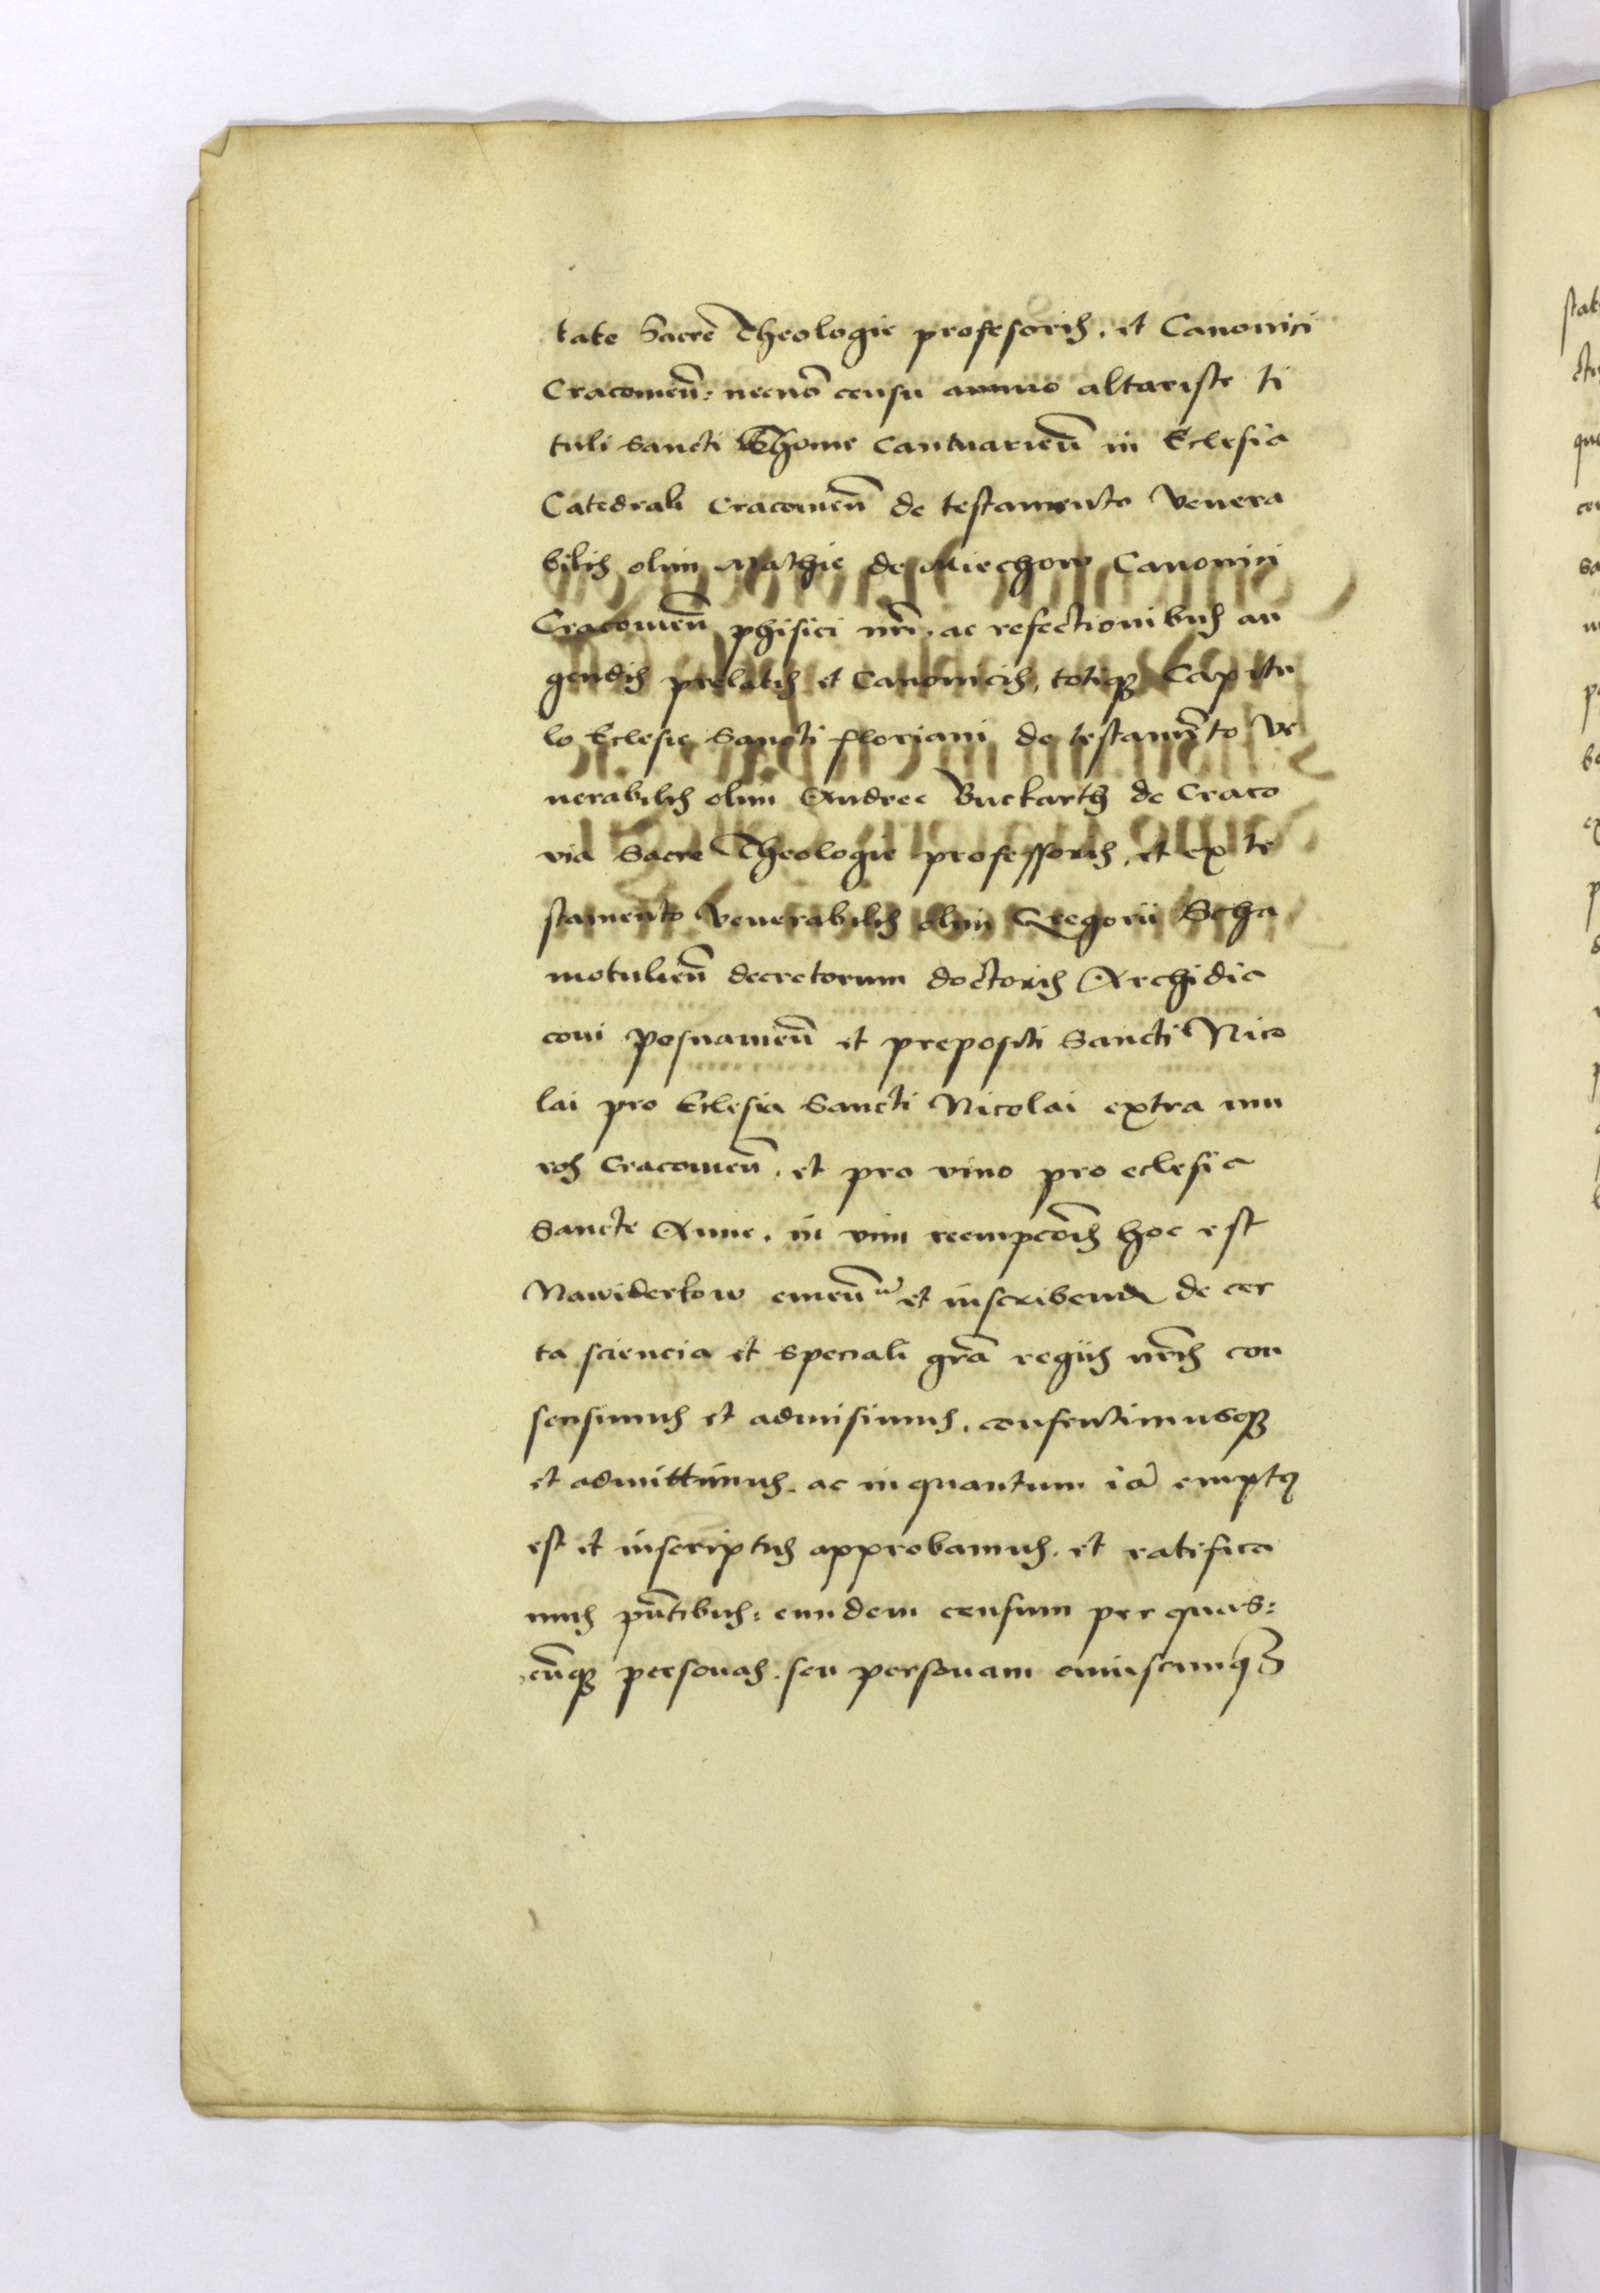 tate Sacre Theologie profesoris. et Canonici
Cracovieñ: necnõ censu annuo altariste ti
tuli Sancti Thome Cantuarieñ in Eclesia
Catedrali Cracovieñ de testamento Venera
bilis olim Mathie de Miechow Canonici
Cracovieñ phisici nrĩ. ac refectionibus au
gendis prelatis et Canonicis, totiqꝫ Capitu
lo Eclesie Sancti floriani de testamẽto Ve
nerabilis olim Andree Buckarth de Craco
via Sacre Theologie professoris, et ex te
stamento Venerabilis olim Gregorii Scha
motulieñ decretorum doctoris Archidia
coni Posnanieñ et prepositi Sancti Nico
lai pro Eclesia Sancti Nicolai extra mu
ros Cracovieñ. et pro vino pro eclesia
Sancte Anne. in vim reempcõis hoc est
Nawiderkow emeñ et inscribend de cer
ta sciencia et speciali grã regiis nrĩs con
sensimus et admisimus. consentimusqꝫ
et admittimus. ac inquantum iã emptꝰ
est et inscriptus approbamus. et ratifica
mus pñtibus: eundem censum per quas:
cũqꝫ personas. seu personam cuiuscumqꝫ
stat
que